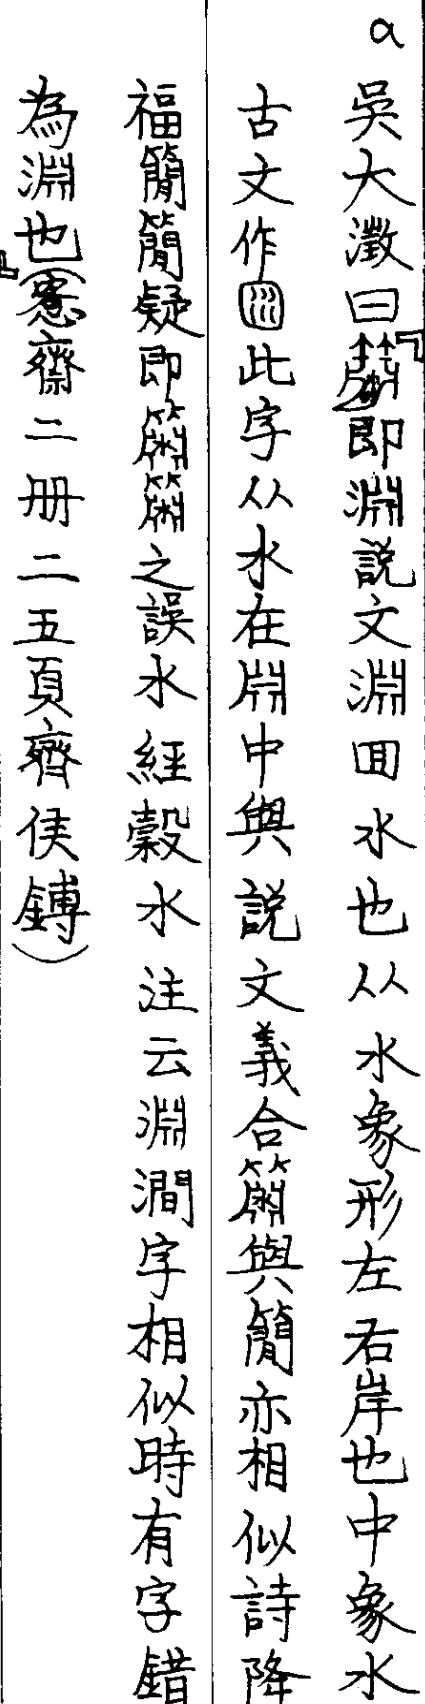 a
吳大澂曰「即淵説文淵回水也从水象形左右岸也中象水
古文作此字从水在𣶒中與説文義合與簡亦相似詩降
福簡簡疑即之誤水經穀水注云淵澗字相似時有字錯
為淵也」(愙齋二册二五頁齊侯鎛)